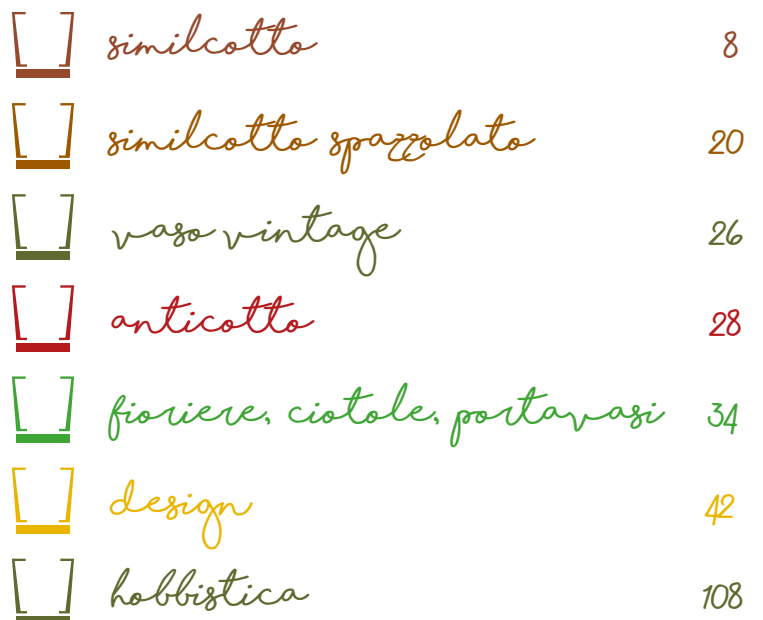 similcotto 8
similcotto spazzolato 20
vaso vintage 26
anticotto 28
fioriere, ciotole, portavasi 34
design 42
hobbistica 108